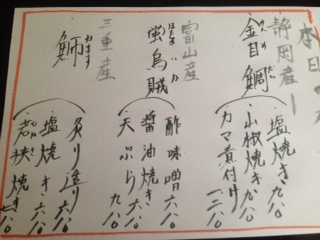 本日
静岡産
金目鯛
塩焼き 九八〇
山椒焼き 九八〇
カマ煮付け
富山産
ほたるいか
蛍烏賊
酢味噌 六八〇
醤油焼き 六八〇
天ぷら 九八〇
三重産
かます
魳
炙り造り 六八〇
塩焼き 六八〇
若狭焼き